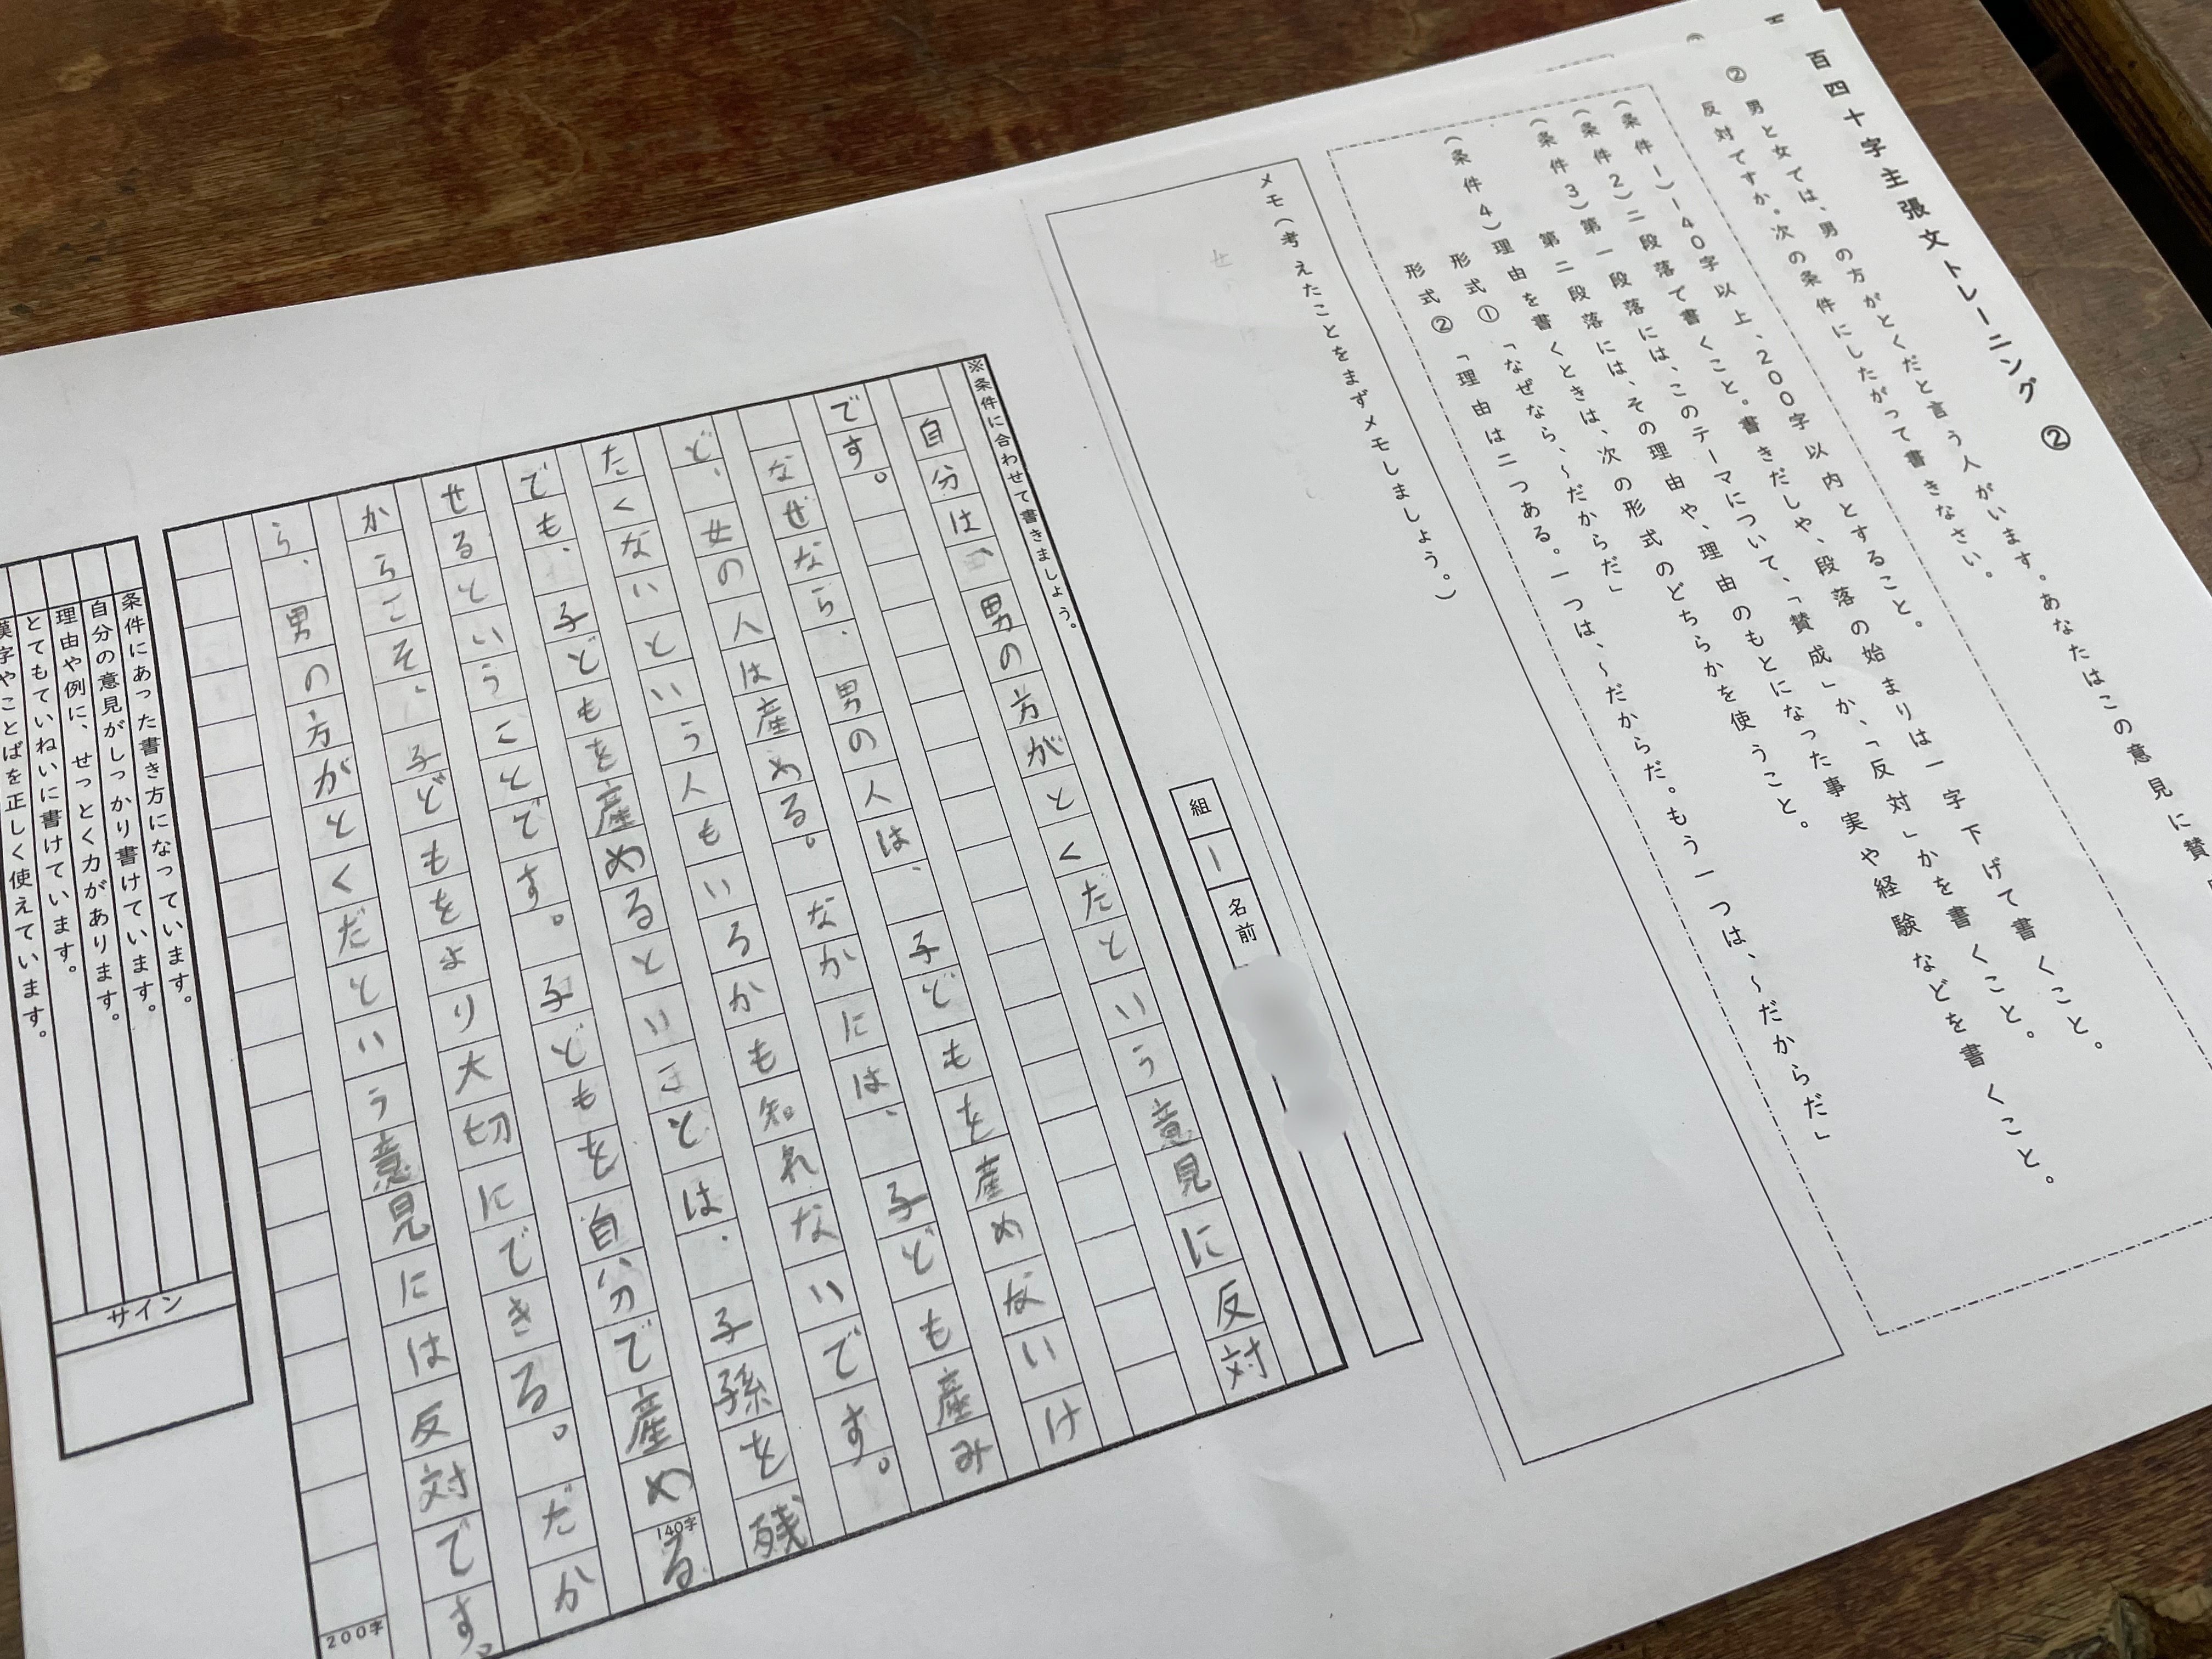 百四十字主張文トレーニング ②
② 男と女では、男の方がとくだと言う人がいます。あなたはこの意見に賛
反対ですか。次の条件にしたがって書きなさい。
(条件1)140字以上、200字以内とすること。
(条件2)二段落で書くこと。書きだしや、段落の始まりは一字下げて書くこと。
(条件3)第一段落には、このテーマについて、「賛成」か、「反対」かを書くこと。
第二段落には、その理由や、理由のもとになった事実や経験などを書くこと。
(条件4)理由を書くときは、次の形式のどちらかを使うこと。
形式①「なぜなら、~だからだ」
形式②「理由は二つある。一つは、~だからだ。もう一つは、~だからだ」
メモ(考えたことをまずメモしましょう。)
組 1 名前
※条件に合わせて書きましょう。
自分は「男の方がとくだという意見に反対
です。
なぜなら、男の人は、子どもを産めないけ
ど、女の人は産める。なかには、子ども産み
たくないという人もいるかも知れないです。
でも、子どもを産めるということは、子孫を残
せるということです。子どもを自分で産める
からこそ、子どもをより大切にできる。だか
ら、男の方がとくだという意見には反対です。
140字
200字
条件にあった書き方になっています。
自分の意見がしっかり書けています。
理由や例に、せっとく力があります。
とてもていねいに書けています。
漢字やことばを正しく使えています。
サイン